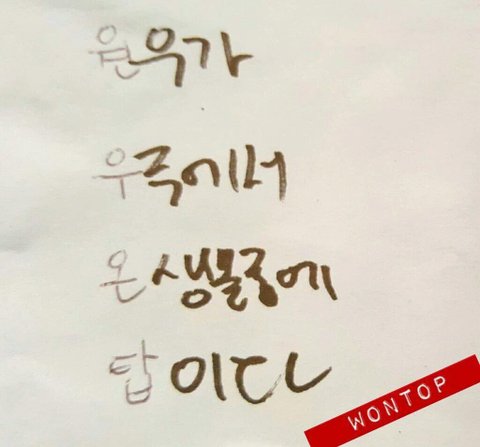 원우가
우주에서
온생물중에
탑이다
WONTOP